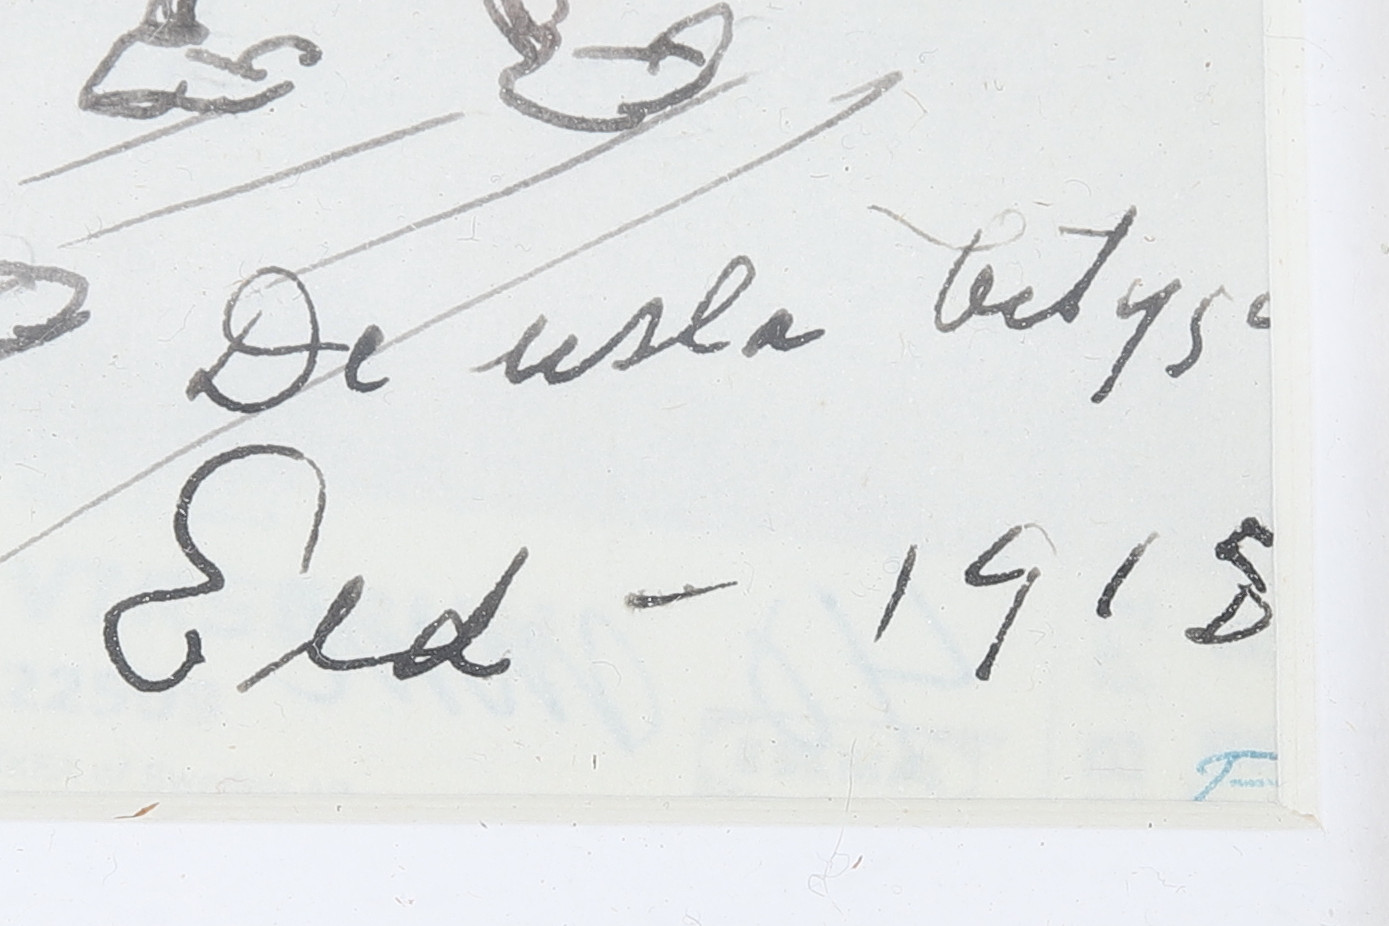 De usla betyge
Eld - 1918